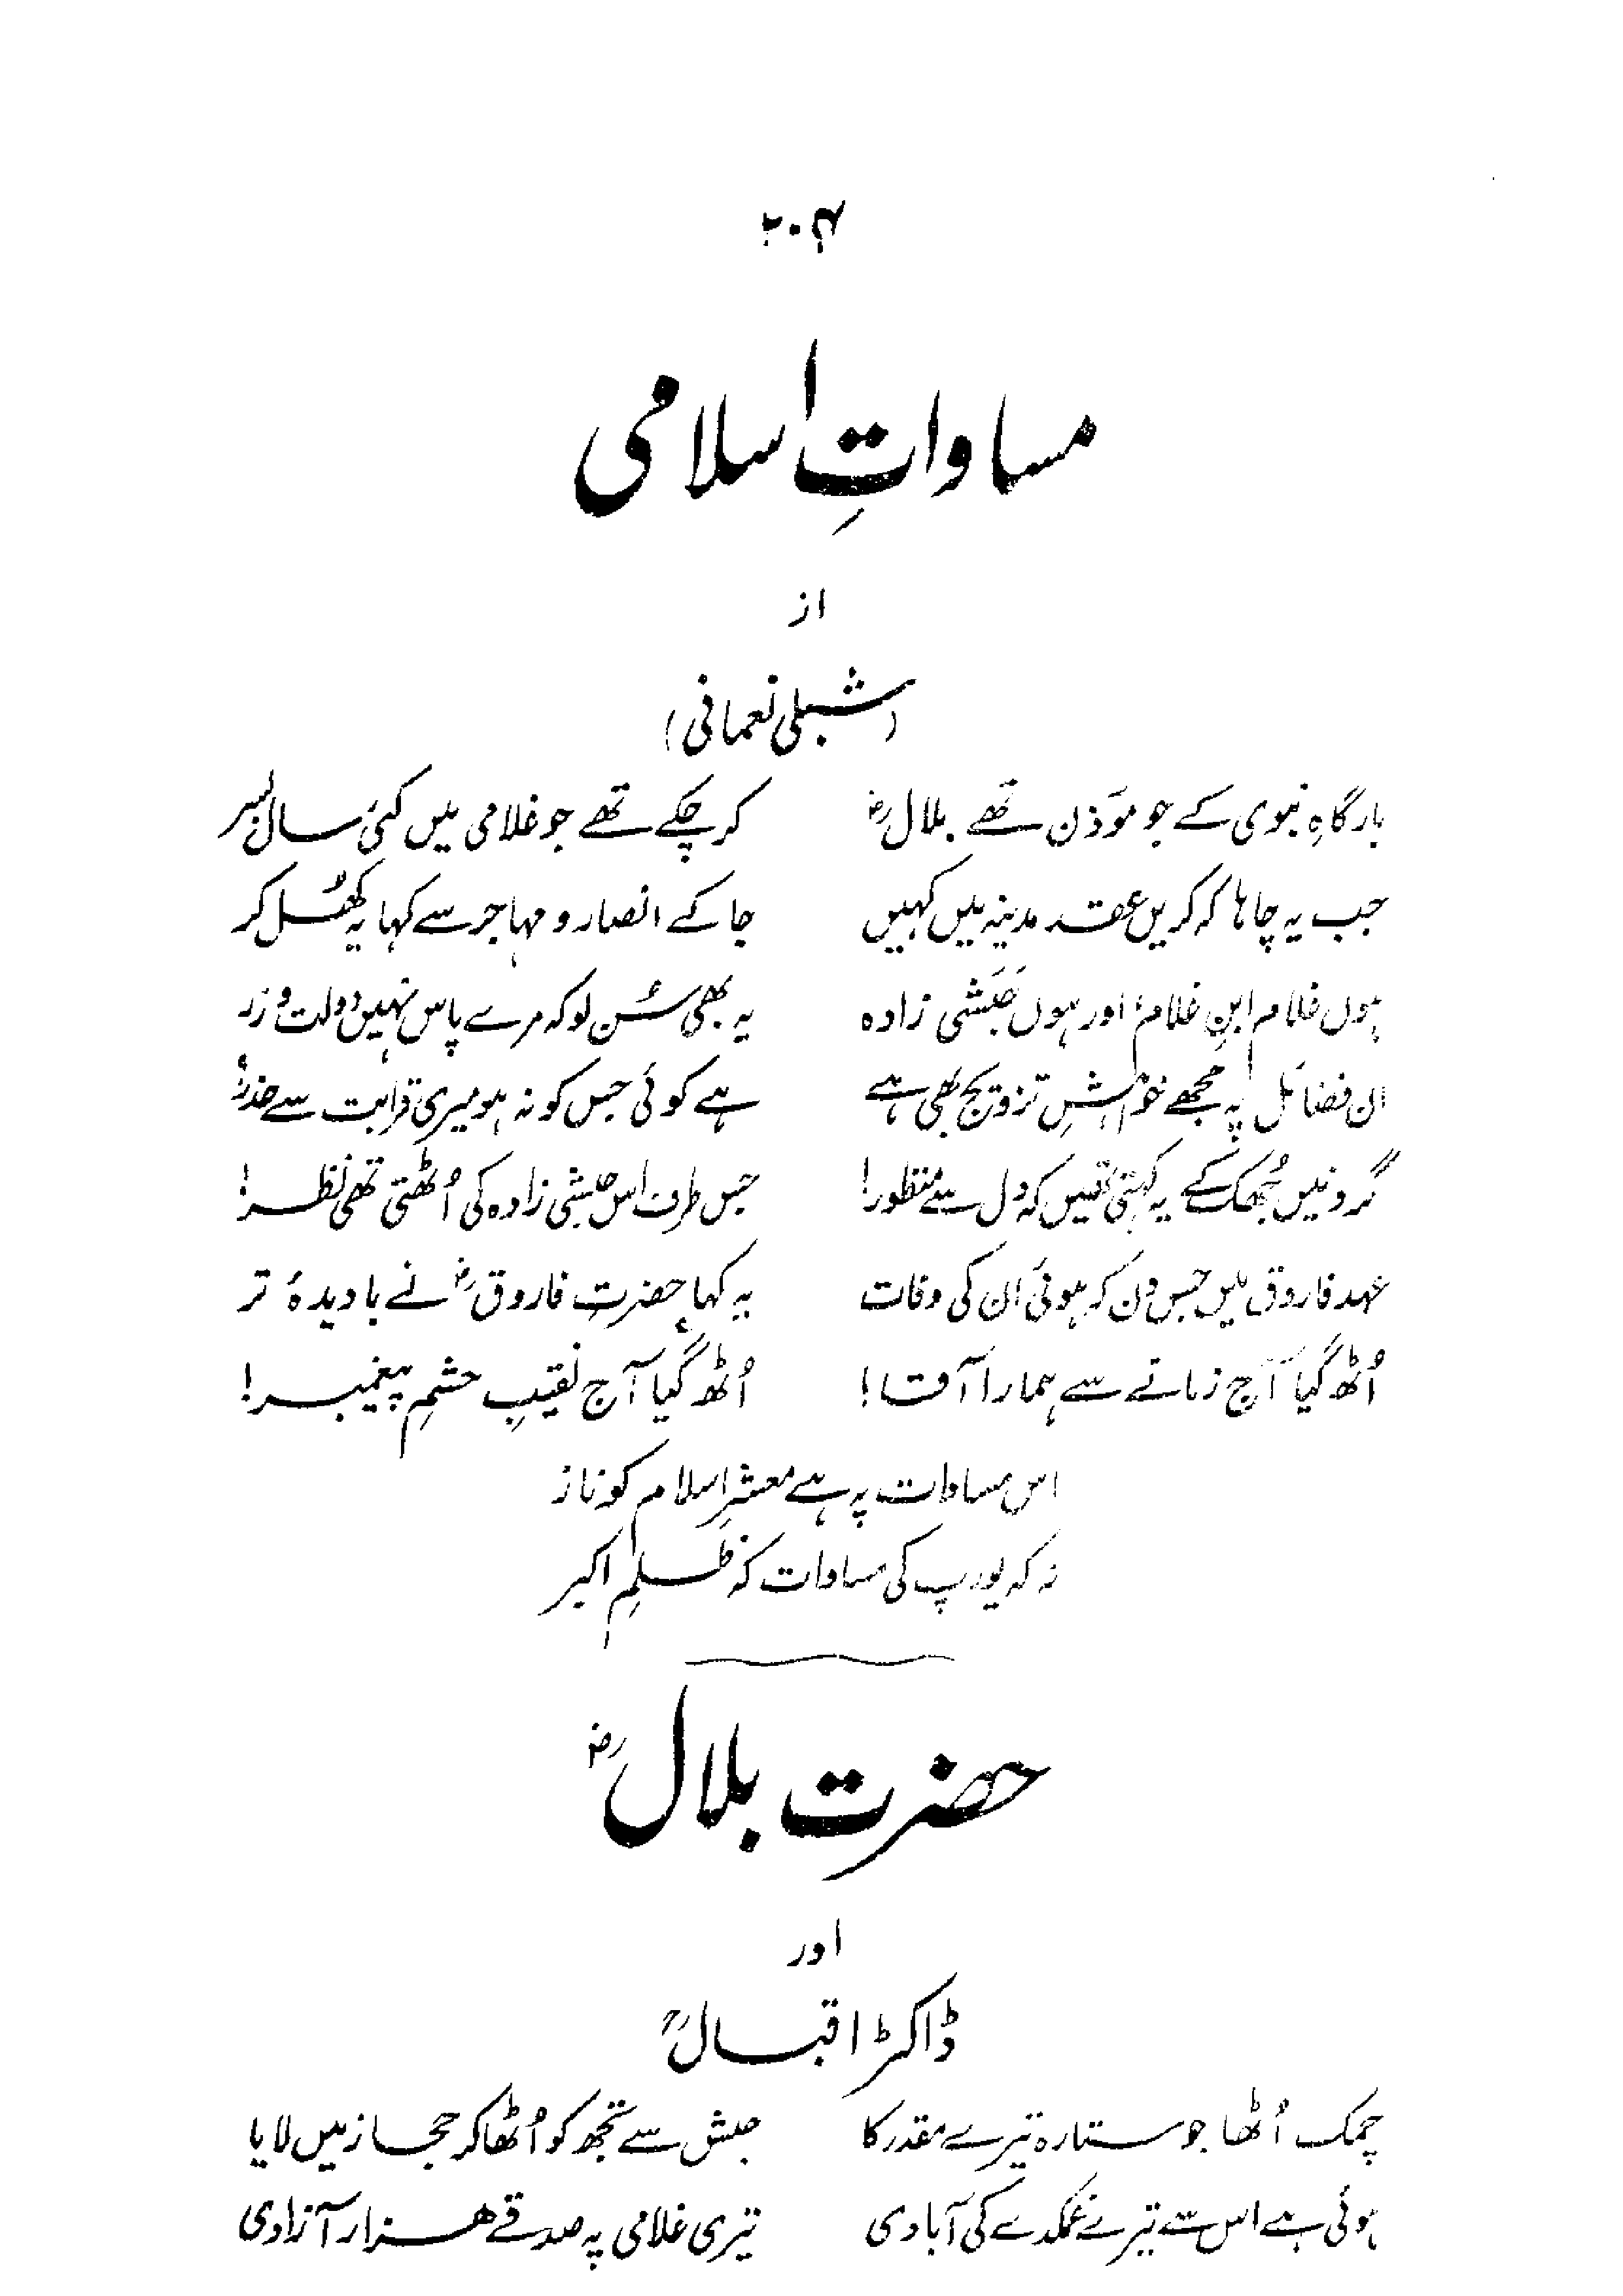 ۲۰۴
مساواتِ اسلامی
از
(شبلی نعمانی)
بارگاہِ نبوی کے جو موَذن تھے بلالؓ کر چکے تھے جو غلامی میں کئی سال بسر
جب یہ چاہا کہ کریں عقد مدینہ میں کہیں جا کے انصار و مہاجر سے کہا یہ کھُل کر
ہوں غلام ابنِ غلام اور ہوں حَبَشی زادہ یہ بھی سُن لو کہ مرے پاس نہیں دولت و زر
ان فضائل پہ مجھے خواہشِ تزویج بھی ہے ہے کوئی جس کو نہ ہو میری قرابت سے حذر؟
گردنیں جُھک کے یہ کہتی تھیں کہ دل سے منظور! جس طرف اس حبشی زادہ کی اُٹھتی تھی نظر!
عہد فاروق میں جس دن کہ ہوئی ان کی وفات یہ کہا حضرتِ فاروقؓ نے بادیدۂ تر
اُٹھ گیا آج زمانے سے ہمارا آقا! اُٹھ گیا آج نقیبِ حشمِ پیغمبر!
اس مساوات پہ ہے معشرِ اسلام کو ناز
نہ کہ یورپ کی مساوات کہ ظلمِ اکبر
حضرت بلالؓ
اور
ڈاکٹر اقبالؒ
چمک اُٹھا جو ستارہ تیرے مقدر کا حبش سے تجھ کو اُٹھا کر حجاز میں لایا
ہوئی ہے اس سے تیرے غمکدے کی آبادی تیری غلامی پہ صدقے ہزار آزادی